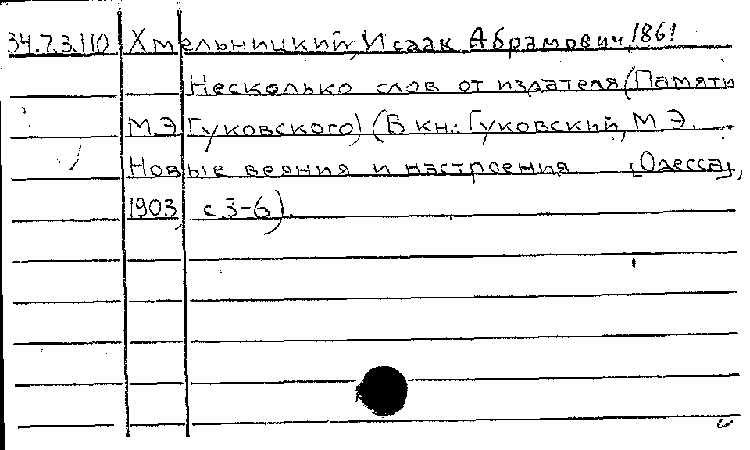 34.7.3.110 Хмельницкий, Исаак Абрамович, 1861
Несколько слов от издателя (Памяти
М.Э. Гуковского) (В кн.: Гуковский, М.Э.
Новые веяния и настроения [Одесса],
1903, с 3-6).